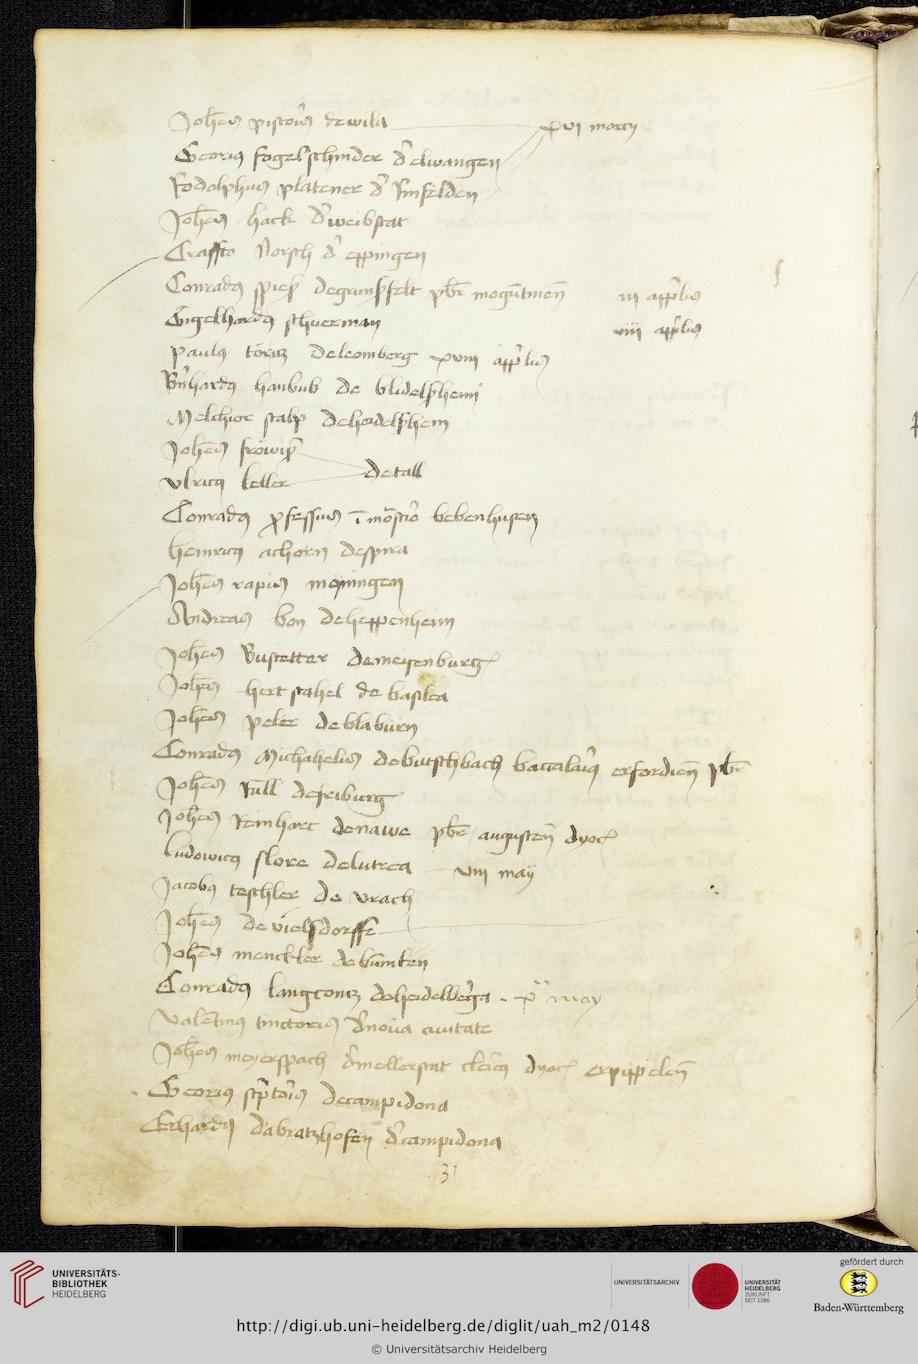 Johe͞s pistor̉is de wila xvi marcy
Georiꝰ fogelschinder d̓ elwangen
Rodolphus platener d̓ Rinfelden
Johe͞s hack d̓ weibstat
Craffto Norsch d̓ eppingen
Conradꝰ spies degrunsfelt pb͞r mogu͞tine͞n iii app̓lis
Engelhardꝰ schuerman viii app̓lis
Paulꝰ deleomberg xviii app̓lis
B̓nhardꝰ de blidelsheim
Melchior stalp deheidelshem
Johe͞s fröwis
Ulricꝰ keller detall
Conradꝰ ꝓfessus i͞ mo͞st̓io bebenhusen
heinricꝰ achorn despira
Johe͞s rapis moningen
Andreas bon deheppenheim
Johe͞s Bustetter demeisenburg
Johe͞s hertstahel de basilea
Johe͞s peler deblaburn
Conradꝰ Michahelis debutschbach baccalariꝰ erfordie͞n pb͞r
Johe͞s Rull defriburg
Johe͞s Reinhart denawe pb͞r auguste͞n dyoc̓
Ludowicꝰ flore delutrea viii may
Jacobꝰ teschler de vrach
Johe͞s de vielsdorffe
Johe͞s menckler
Conradꝰ langcontz deheidelberga xa may
Valentinꝰ tinctoris d̓ nova civitate
Johe͞s meyerspach d̓ mellerstat cler̓icꝰ dyoc̓ erpippole͞n
Georiꝰ sc̓ptoris decampidona
Erhardꝰ dabratzhofen d̓ campidona
31
UNIVERSITÄTS-
BIBLIOTHEK
HEIDELBERG
UNIVERSITÄTSARCHIV
UNIVERSITÄT
HEIDELBERG
ZUKUNFT
SEIT 1386
gefördert durch
Baden-Württemberg
http://digi.ub.uni-heidelberg.de/diglit/uah_m2/0148
© Universitätsarchiv Heidelberg